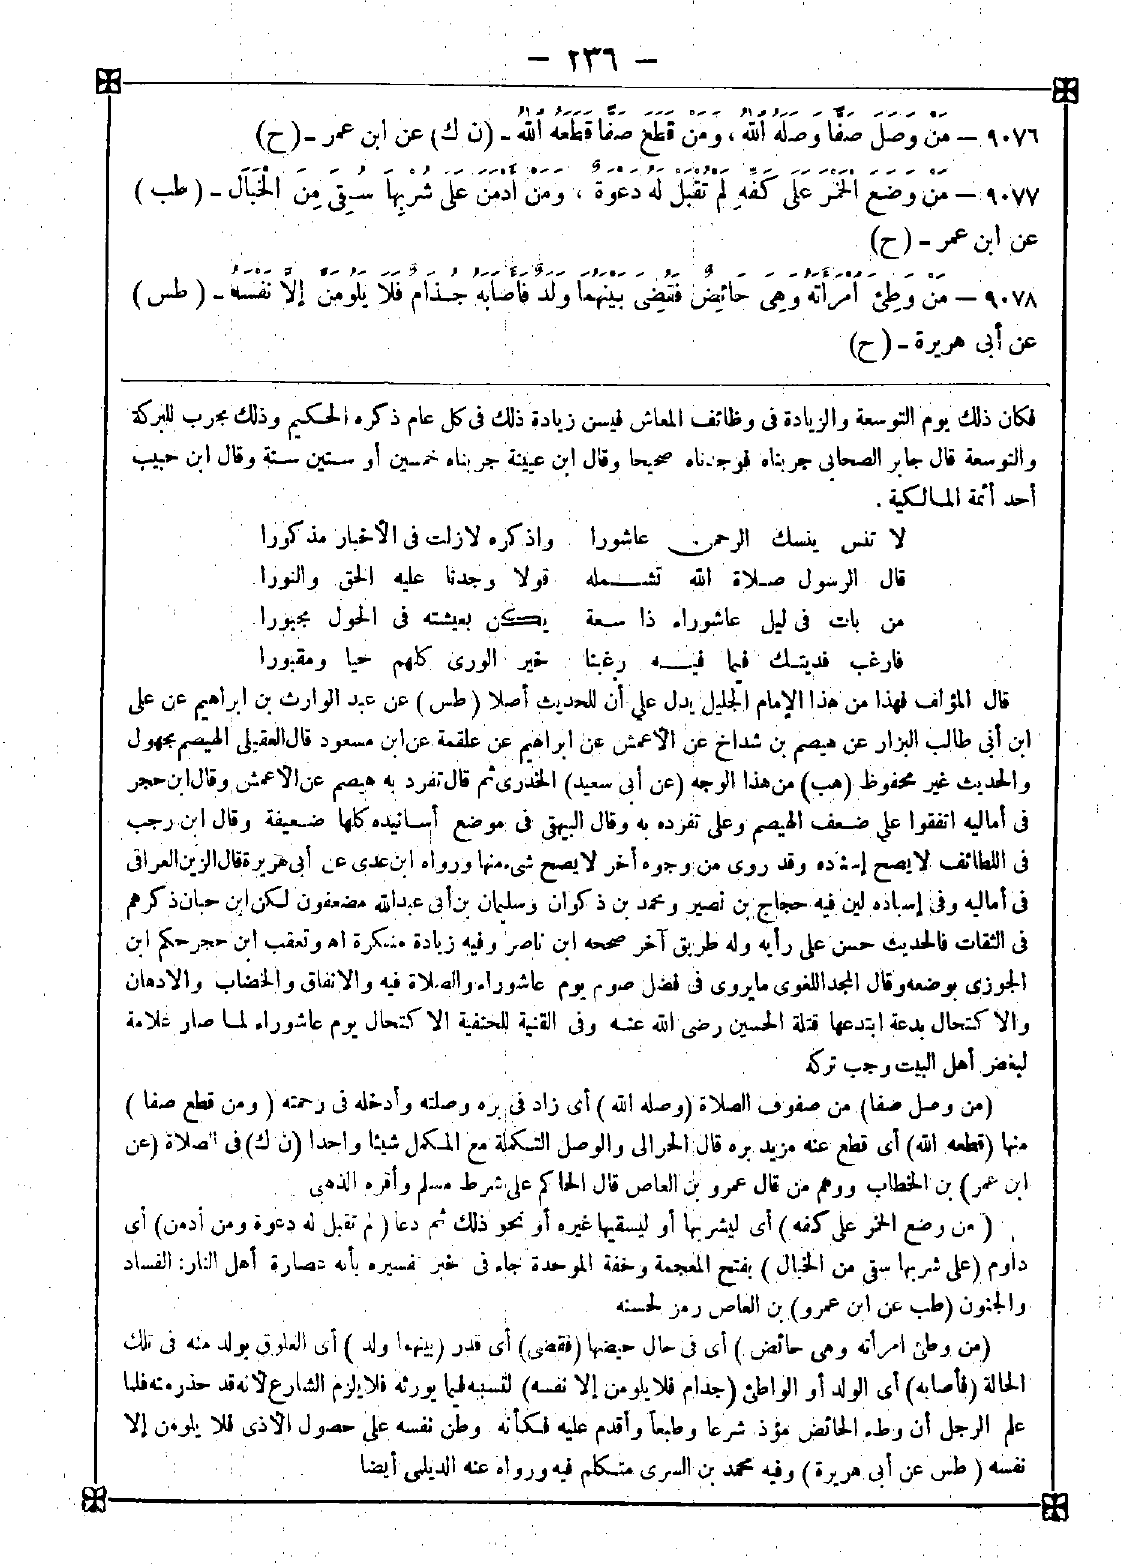 — ٢٣٦ —
٩٠٧٦ — مَنْ وَصَلَ صَفًّا وَصَلَهُ اللّٰهُ، وَمَنْ قَطَعَ صَفًّا قَطَعَهُ اللّٰهُ - (ن ك) عن ابن عمر - (ح)
٩٠٧٧ — مَنْ وَضَعَ الْخَمْرَ عَلَى كَفِّهِ لَمْ تُقْبَلْ لَهُ دَعْوَةٌ، وَمَنْ أَدْمَنَ عَلَى شُرْبِهَا سُقِيَ مِنَ الْخَبَالِ - (طب)
عن ابن عمر - (ح)
٩٠٧٨ — مَنْ وَطِئَ امْرَأَتَهُ وَهِيَ حَائِضٌ فَقُضِيَ بَيْنَهُمَا وَلَدٌ فَأَصَابَهُ جُذَامٌ فَلَا يَلُومَنَّ إِلَّا نَفْسَهُ - (طس)
عن أبى هريرة - (ح)
فكان ذلك يوم التوسعة والزيادة فى وظائف المعاش فيسن زيادة ذلك فى كل عام ذكره الحكيم وذلك مجرب للبركة
والتوسعة قال جابر الصحابى جربناه فوجدناه صحيحا وقال ابن عيينة جربناه خمسين أو ستين سنة وقال ابن حبيب
أحد أئمة المالكية .
لا تنس ينسك الرحمن عاشورا واذكره لازلت فى الأخبار مذكورا
قال الرسول صلاة الله تشمله قولا وجدنا عليه الحق والنورا
من بات فى ليل عاشوراء ذا سعة يكن بعيشته فى الحول مجبورا
فارغب فديتك فيما فيه رغبنا خير الورى كلهم حيا ومقبورا
قال المؤلف فهذا من هذا الإمام الجليل يدل على أن للحديث أصلا (طس) عن عبد الوارث بن ابراهيم عن على
ابن أبى طالب البزار عن هيصم بن شداخ عن الأعمش عن ابراهيم عن علقمة عن ابن مسعود قال العقيلى الهيصم مجهول
والحديث غير محفوظ (هب) من هذا الوجه (عن أبى سعيد) الخدرى ثم قال تفرد به هيصم عن الأعمش وقال ابن حجر
فى أماليه اتفقوا على ضعف الهيصم وعلى تفرده به وقال البيهقى فى موضع أسانيده كلها ضعيفة وقال ابن رجب
فى اللطائف لا يصح إسناده وقد روى من وجوه أخر لا يصح شىء منها ورواه ابن عدى عن أبى هريرة قال الزين العراقى
فى أماليه وفى إسناده لين فيه حجاج بن نصير ومحمد بن ذكوان وسليمان بن أبى عبدالله مضعفون لكن ابن حبان ذكرهم
فى الثقات فالحديث حسن على رأيه وله طريق آخر صححه ابن ناصر وفيه زيادة منكرة اه وتعقب ابن حجر حكم ابن
الجوزى بوضعه وقال المجد اللغوى مايروى فى فضل صوم يوم عاشوراء والصلاة فيه والانفاق والخضاب والادهان
والاكتحال بدعة ابتدعها قتلة الحسين رضى الله عنه وفى القنية للحنفية الاكتحال يوم عاشوراء لما صار علامة
لبغض أهل البيت وجب تركه
(من وصل صفا) من صفوف الصلاة (وصله الله) أى زاد فى بره وصلته وأدخله فى رحمته (ومن قطع صفا)
منها (قطعه الله) أى قطع عنه مزيد بره قال الحرالى والوصل التكملة مع المكمل شيئا واحدا (ن ك) فى الصلاة (عن
ابن عمر) بن الخطاب ووهم من قال عمرو بن العاص قال الحاكم على شرط مسلم وأقره الذهبى
(من وضع الخمر على كفه) أى ليشربها أو ليسقيها غيره أو نحو ذلك ثم دعا (لم تقبل له دعوة ومن أدمن) أى
داوم (على شربها سقى من الخبال) بفتح المعجمة وخفة الموحدة جاء فى خبر تفسيره بأنه عصارة أهل النار: الفساد
والجنون (طب عن ابن عمرو) بن العاص رمز لحسنه
(من وطئ امرأته وهى حائض) أى فى حال حيضها (فقضى) أى قدر (بينهما ولد) أى العلوق بولد منه فى تلك
الحالة (فأصابه) أى الولد أو الواطئ (جذام فلا يلومن إلا نفسه) لتسببه فيما يورثه فلا يلزم الشارع لأنه قد حذر منه فلما
علم الرجل أن وطء الحائض مؤذ شرعا وطبعا وأقدم عليه فكأنه وطن نفسه على حصول الأذى فلا يلومن إلا
نفسه (طس عن أبى هريرة) وفيه محمد بن السرى متكلم فيه ورواه عنه الديلمى أيضا